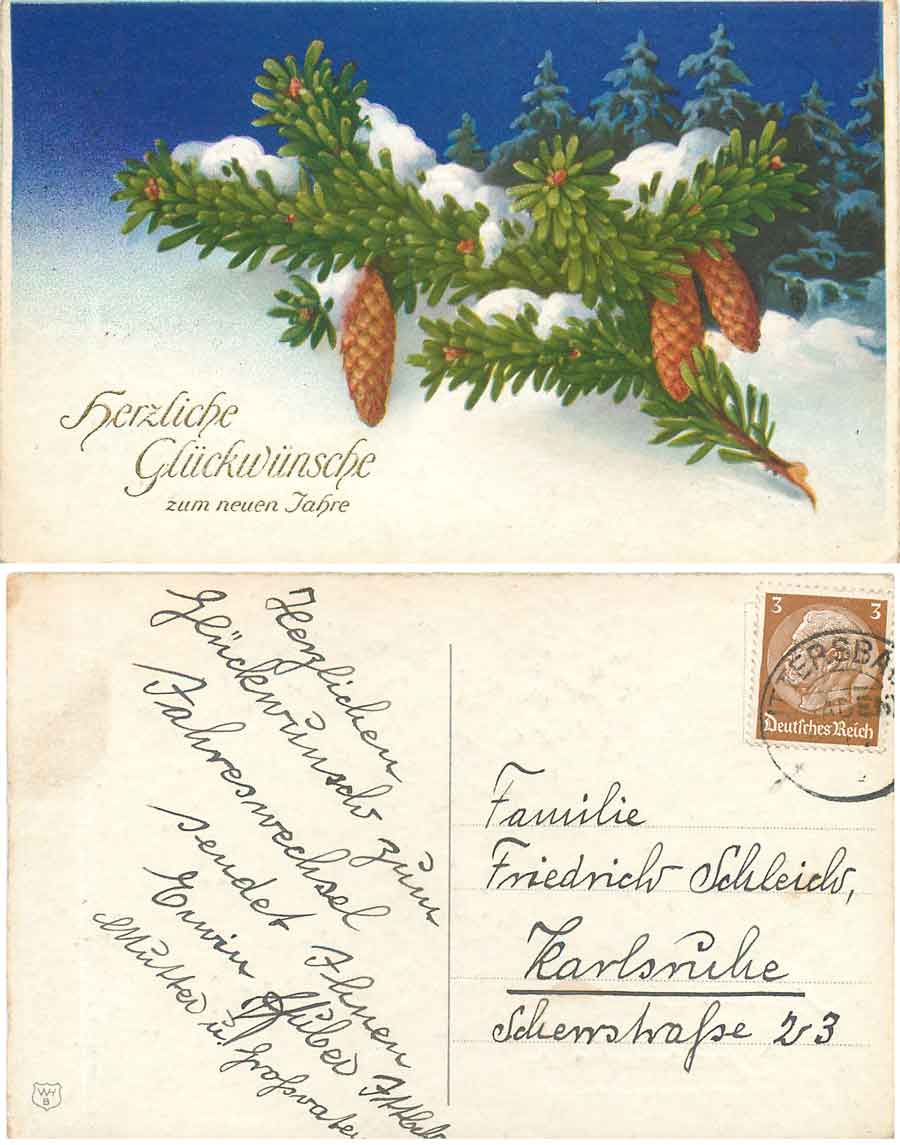 Herzliche
Glückwünsche
zum neuen Jahre
Herzlichen
Glückwunsch zum
Jahreswechsel
sendet Ihnen
Erwin Huber
Mutter u. Großvater
3 3
Deutsches Reich
ITTERSBA
Familie
Friedrich Schleich,
Karlsruhe
23